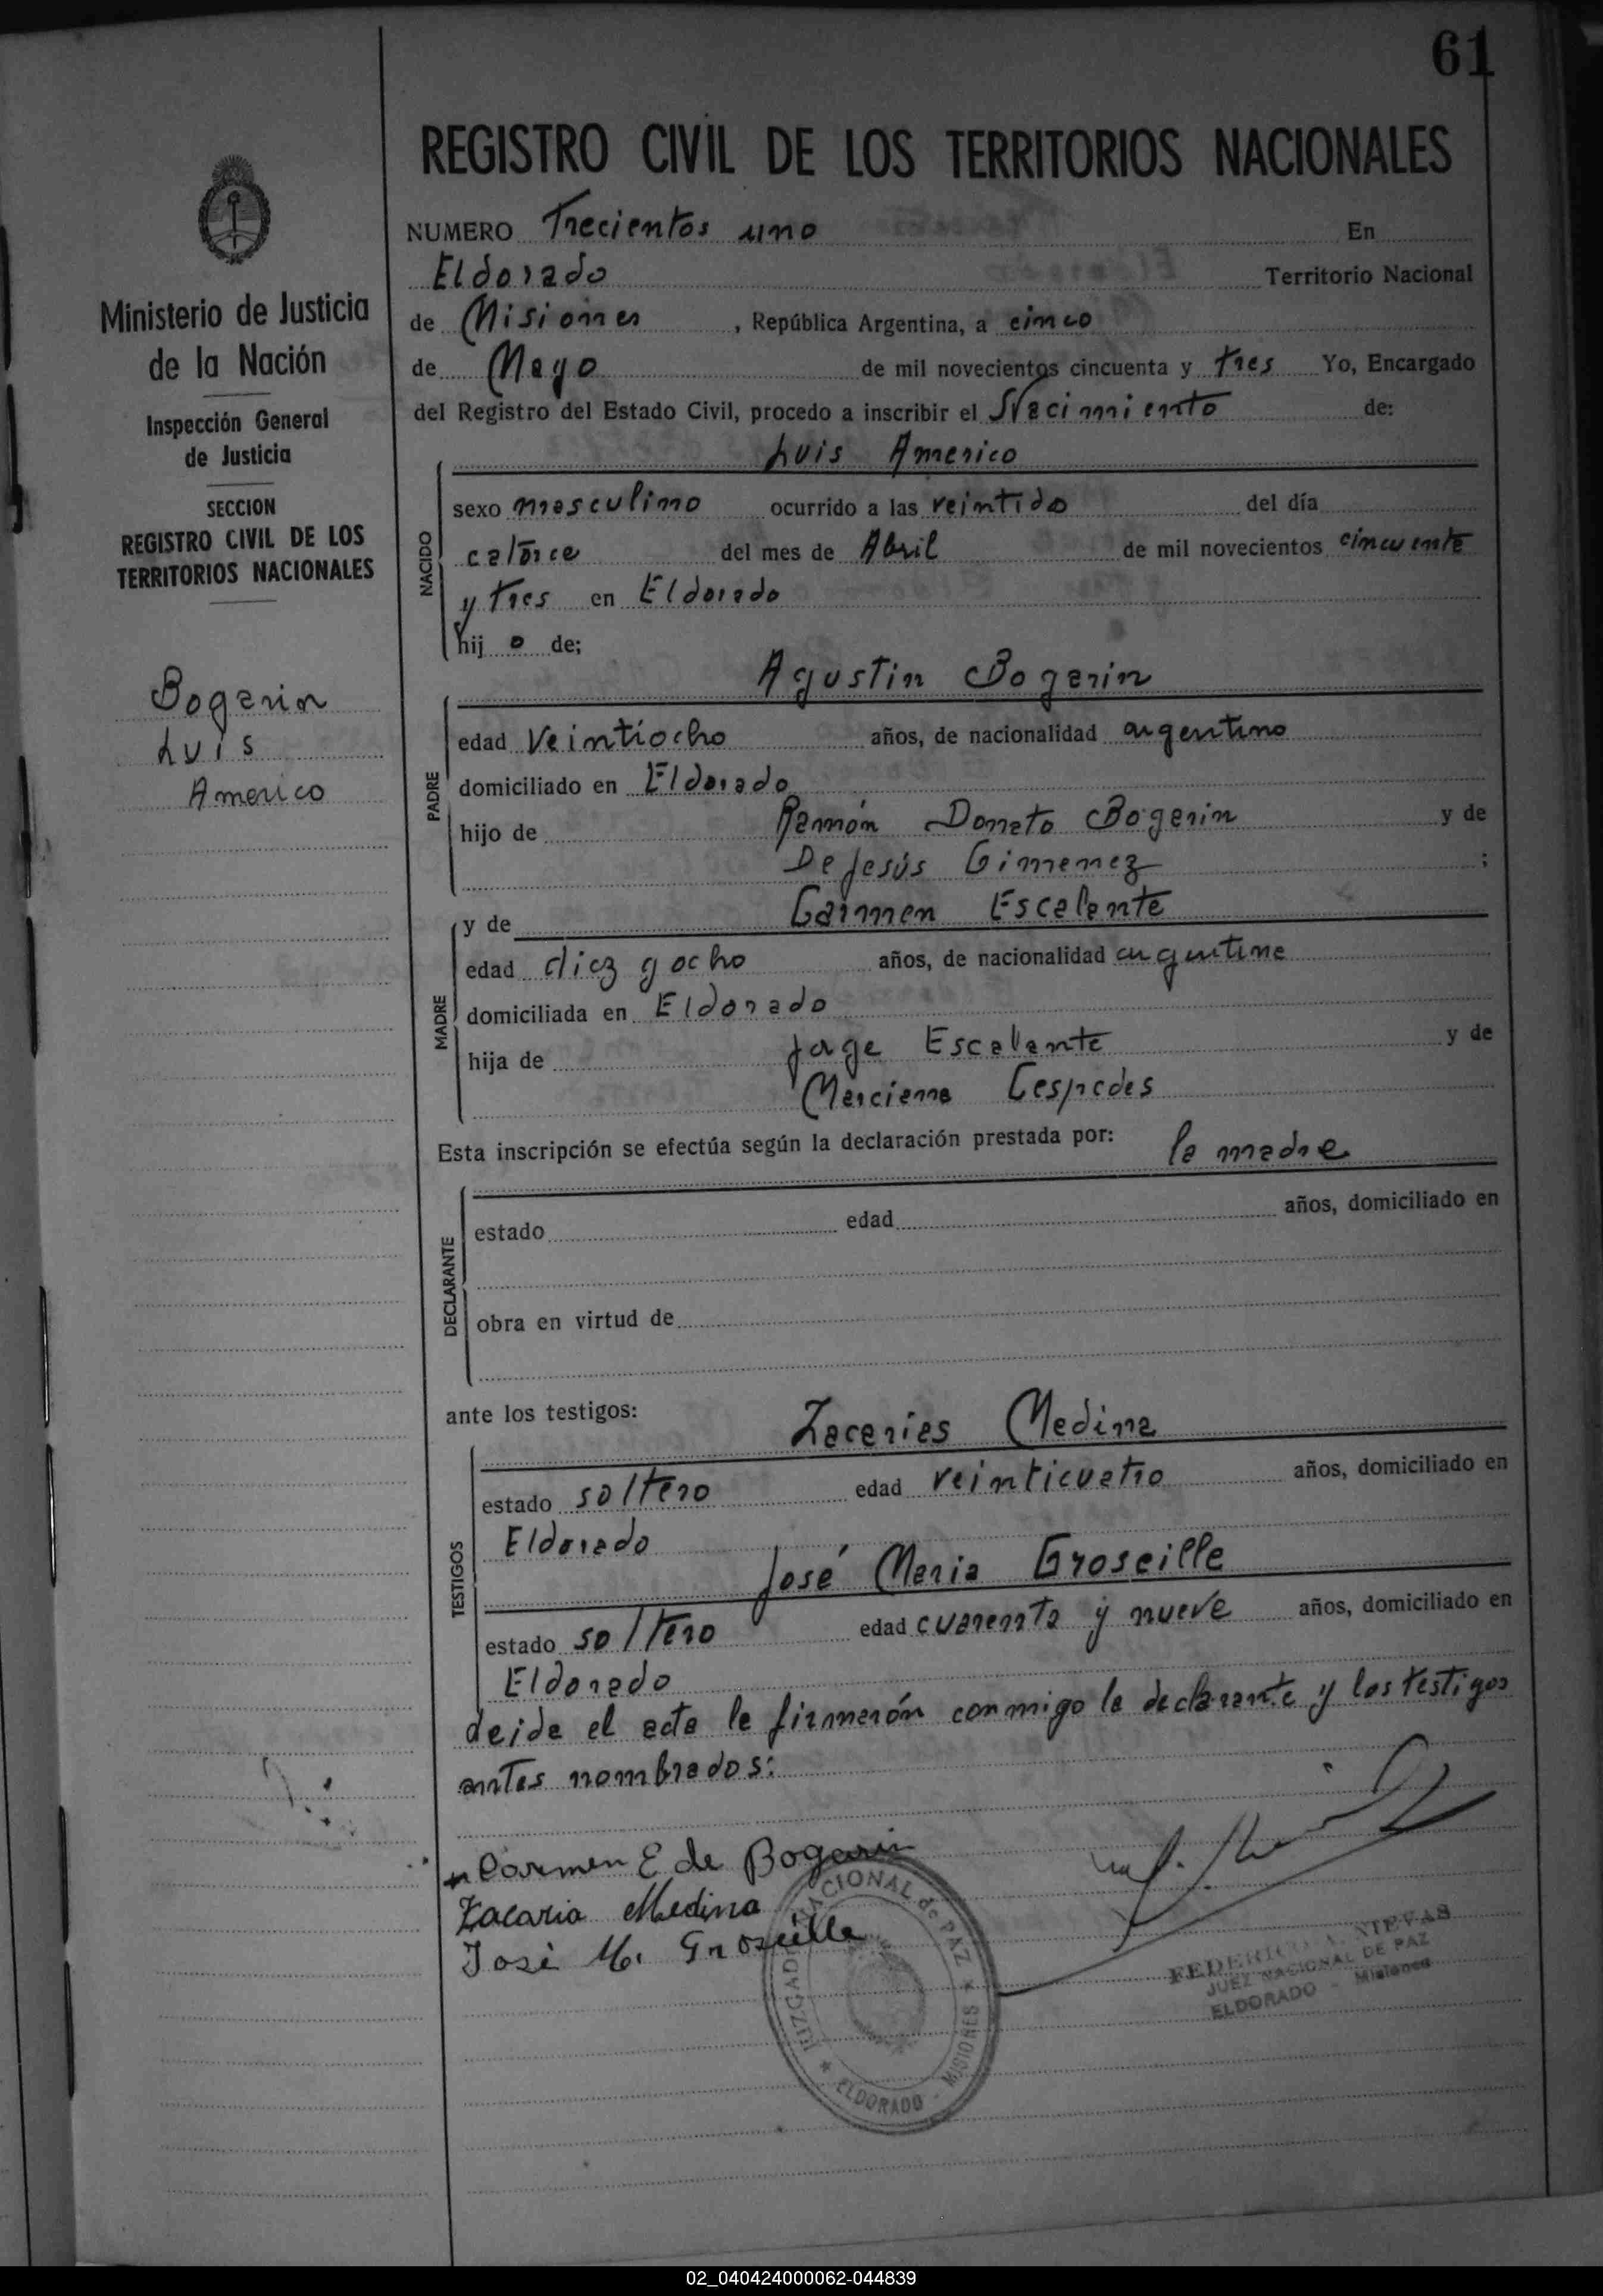 61
REGISTRO CIVIL DE LOS TERRITORIOS NACIONALES
Ministerio de Justicia
de la Nación
Inspección General
de Justicia
SECCION
REGISTRO CIVIL DE LOS
TERRITORIOS NACIONALES
Bogarin
Luis
Americo
NUMERO Trecientos uno En
Eldorado Territorio Nacional
de Misiones, República Argentina, a cinco
de Mayo de mil novecientos cincuenta y tres Yo, Encargado
del Registro del Estado Civil, procedo a inscribir el Nacimiento de:
Luis Americo
NACIDO
sexo masculino ocurrido a las veintido del día
catorce del mes de Abril de mil novecientos cincuenta
y tres en Eldorado
hij o de;
Agustin Bogarin
PADRE
edad Veintiocho años, de nacionalidad argentino
domiciliado en Eldorado
hijo de Ramón Donato Bogarin y de
De Jesús Gimenez ;
y de Carmen Escalante
MADRE
edad diez y ocho años, de nacionalidad argentina
domiciliada en Eldorado
hija de Jorge Escalante y de
Marciana Cespedes
Esta inscripción se efectúa según la declaración prestada por: la madre
DECLARANTE
estado edad años, domiciliado en
obra en virtud de
ante los testigos: Zacarias Medina
TESTIGOS
estado soltero edad veinticuatro años, domiciliado en
Eldorado
José Maria Groseille
estado soltero edad cuarenta y nueve años, domiciliado en
Eldorado
leida el acta le firmarón conmigo la declarante y los testigos
antes nombrados:
Carmen E de Bogarin
Zacaria Medina
José M. Groseille
JUZGADO NACIONAL de PAZ
ELDORADO - MISIONES
FEDERICO A. NIEVAS
JUEZ NACIONAL DE PAZ
ELDORADO - Misiones
02_040424000062-044839